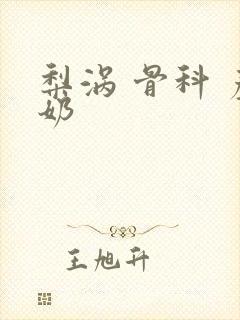 梨涡 骨科
奶
王旭升